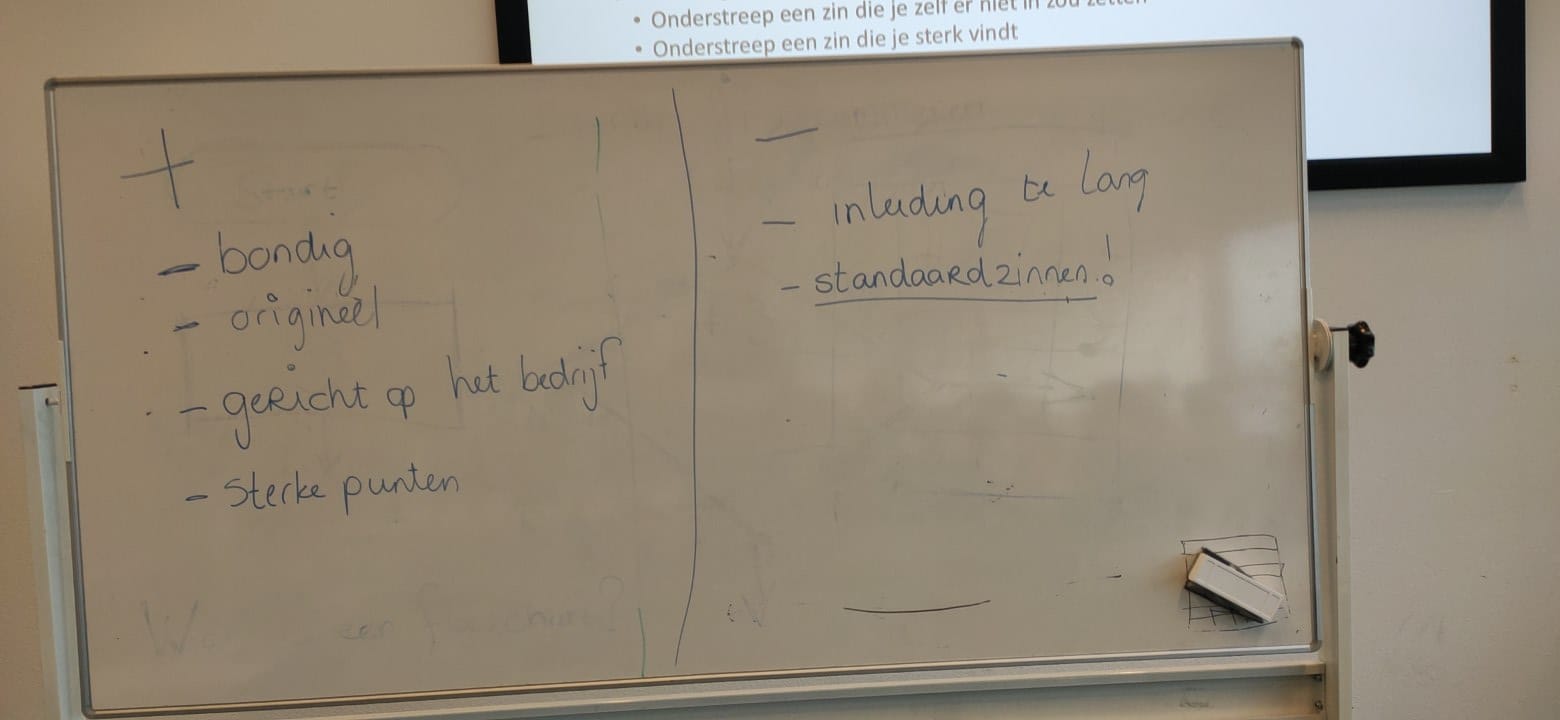 • Onderstreep een zin die je zelf er niet in zou zetten
• Onderstreep een zin die je sterk vindt
+
- bondig
- origineel
- gericht op het bedrijf
- sterke punten
—
- inleiding te lang
- standaardzinnen!